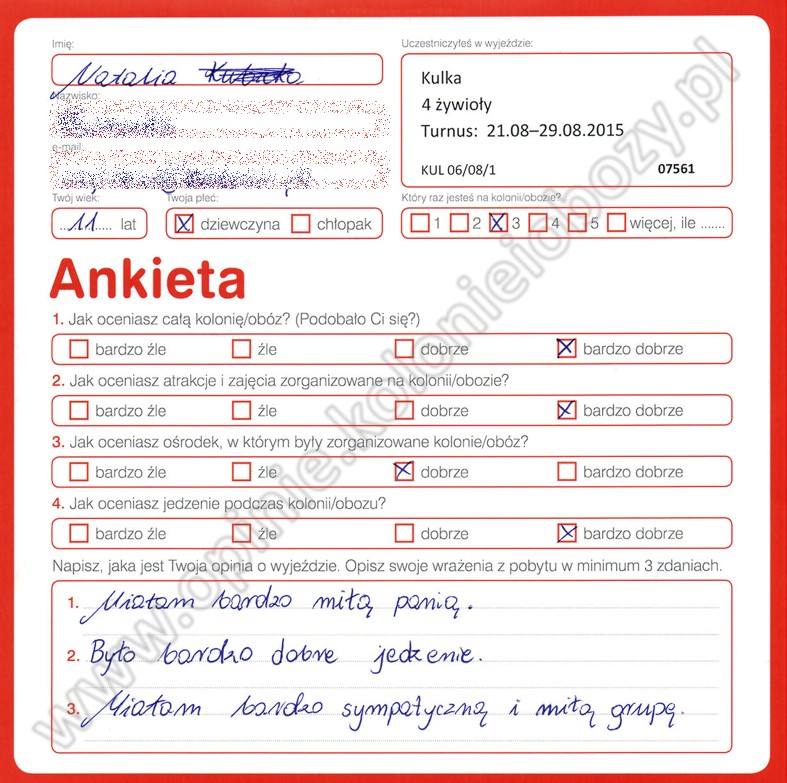 Imię:
Uczestniczyłeś w wyjeździe:
Natalia
Kulka
4 żywioły
Turnus: 21.08–29.08.2015
KUL 06/08/1 07561
Nazwisko:
e-mail:
Twój wiek: Twoja płeć:
Który raz jesteś na kolonii/obozie?
...11..... lat
dziewczyna chłopak
1 2 3 4 5 więcej, ile .......
Ankieta
1. Jak oceniasz całą kolonię/obóz? (Podobało Ci się?)
bardzo źle źle dobrze bardzo dobrze
2. Jak oceniasz atrakcje i zajęcia zorganizowane na kolonii/obozie?
bardzo źle źle dobrze bardzo dobrze
3. Jak oceniasz ośrodek, w którym były zorganizowane kolonie/obóz?
bardzo źle źle dobrze bardzo dobrze
4. Jak oceniasz jedzenie podczas kolonii/obozu?
bardzo źle źle dobrze bardzo dobrze
Napisz, jaka jest Twoja opinia o wyjeździe. Opisz swoje wrażenia z pobytu w minimum 3 zdaniach.
1. Miałam bardzo miłą panią.
2. Było bardzo dobre jedzenie.
3. Miałam bardzo sympatyczną i miłą grupę.
www.opinie.kolonieiobozy.pl